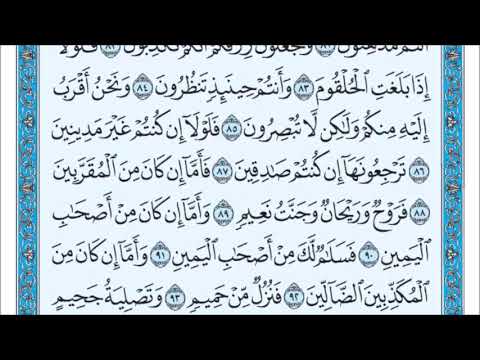 أَنتُم مُّدْهِنُونَ ٨١ وَتَجْعَلُونَ رِزْقَكُمْ أَنَّكُمْ تُكَذِّبُونَ ٨٢ فَلَوْلَا
إِذَا بَلَغَتِ الْحُلْقُومَ ٨٣ وَأَنتُمْ حِينَئِذٍ تَنظُرُونَ ٨٤ وَنَحْنُ أَقْرَبُ
إِلَيْهِ مِنكُمْ وَلَٰكِن لَّا تُبْصِرُونَ ٨٥ فَلَوْلَا إِن كُنتُمْ غَيْرَ مَدِينِينَ
٨٦ تَرْجِعُونَهَا إِن كُنتُمْ صَٰدِقِينَ ٨٧ فَأَمَّا إِن كَانَ مِنَ الْمُقَرَّبِينَ
٨٨ فَرَوْحٌ وَرَيْحَانٌ وَجَنَّتُ نَعِيمٍ ٨٩ وَأَمَّا إِن كَانَ مِنْ أَصْحَٰبِ
الْيَمِينِ ٩٠ فَسَلَٰمٌ لَّكَ مِنْ أَصْحَٰبِ الْيَمِينِ ٩١ وَأَمَّا إِن كَانَ مِنَ
الْمُكَذِّبِينَ الضَّآلِّينَ ٩٢ فَنُزُلٌ مِّنْ حَمِيمٍ ٩٣ وَتَصْلِيَةُ جَحِيمٍ